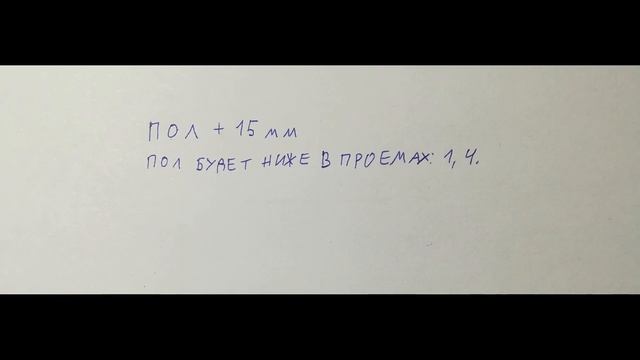 ПОЛ + 15 мм
ПОЛ БУДЕТ НИЖЕ В ПРОЕМАХ: 1, 4.